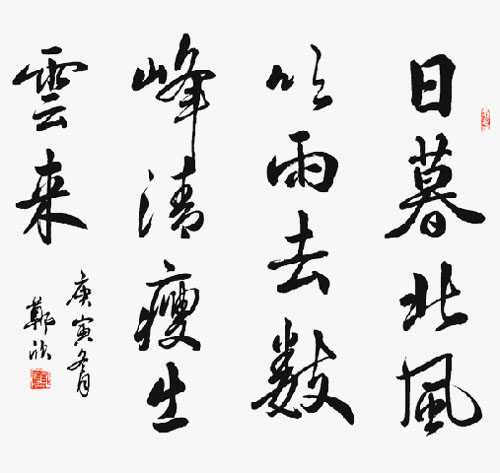 日暮北風
吹雨去數
峰清瘦生
雲来
庚寅冬月
鄭欣